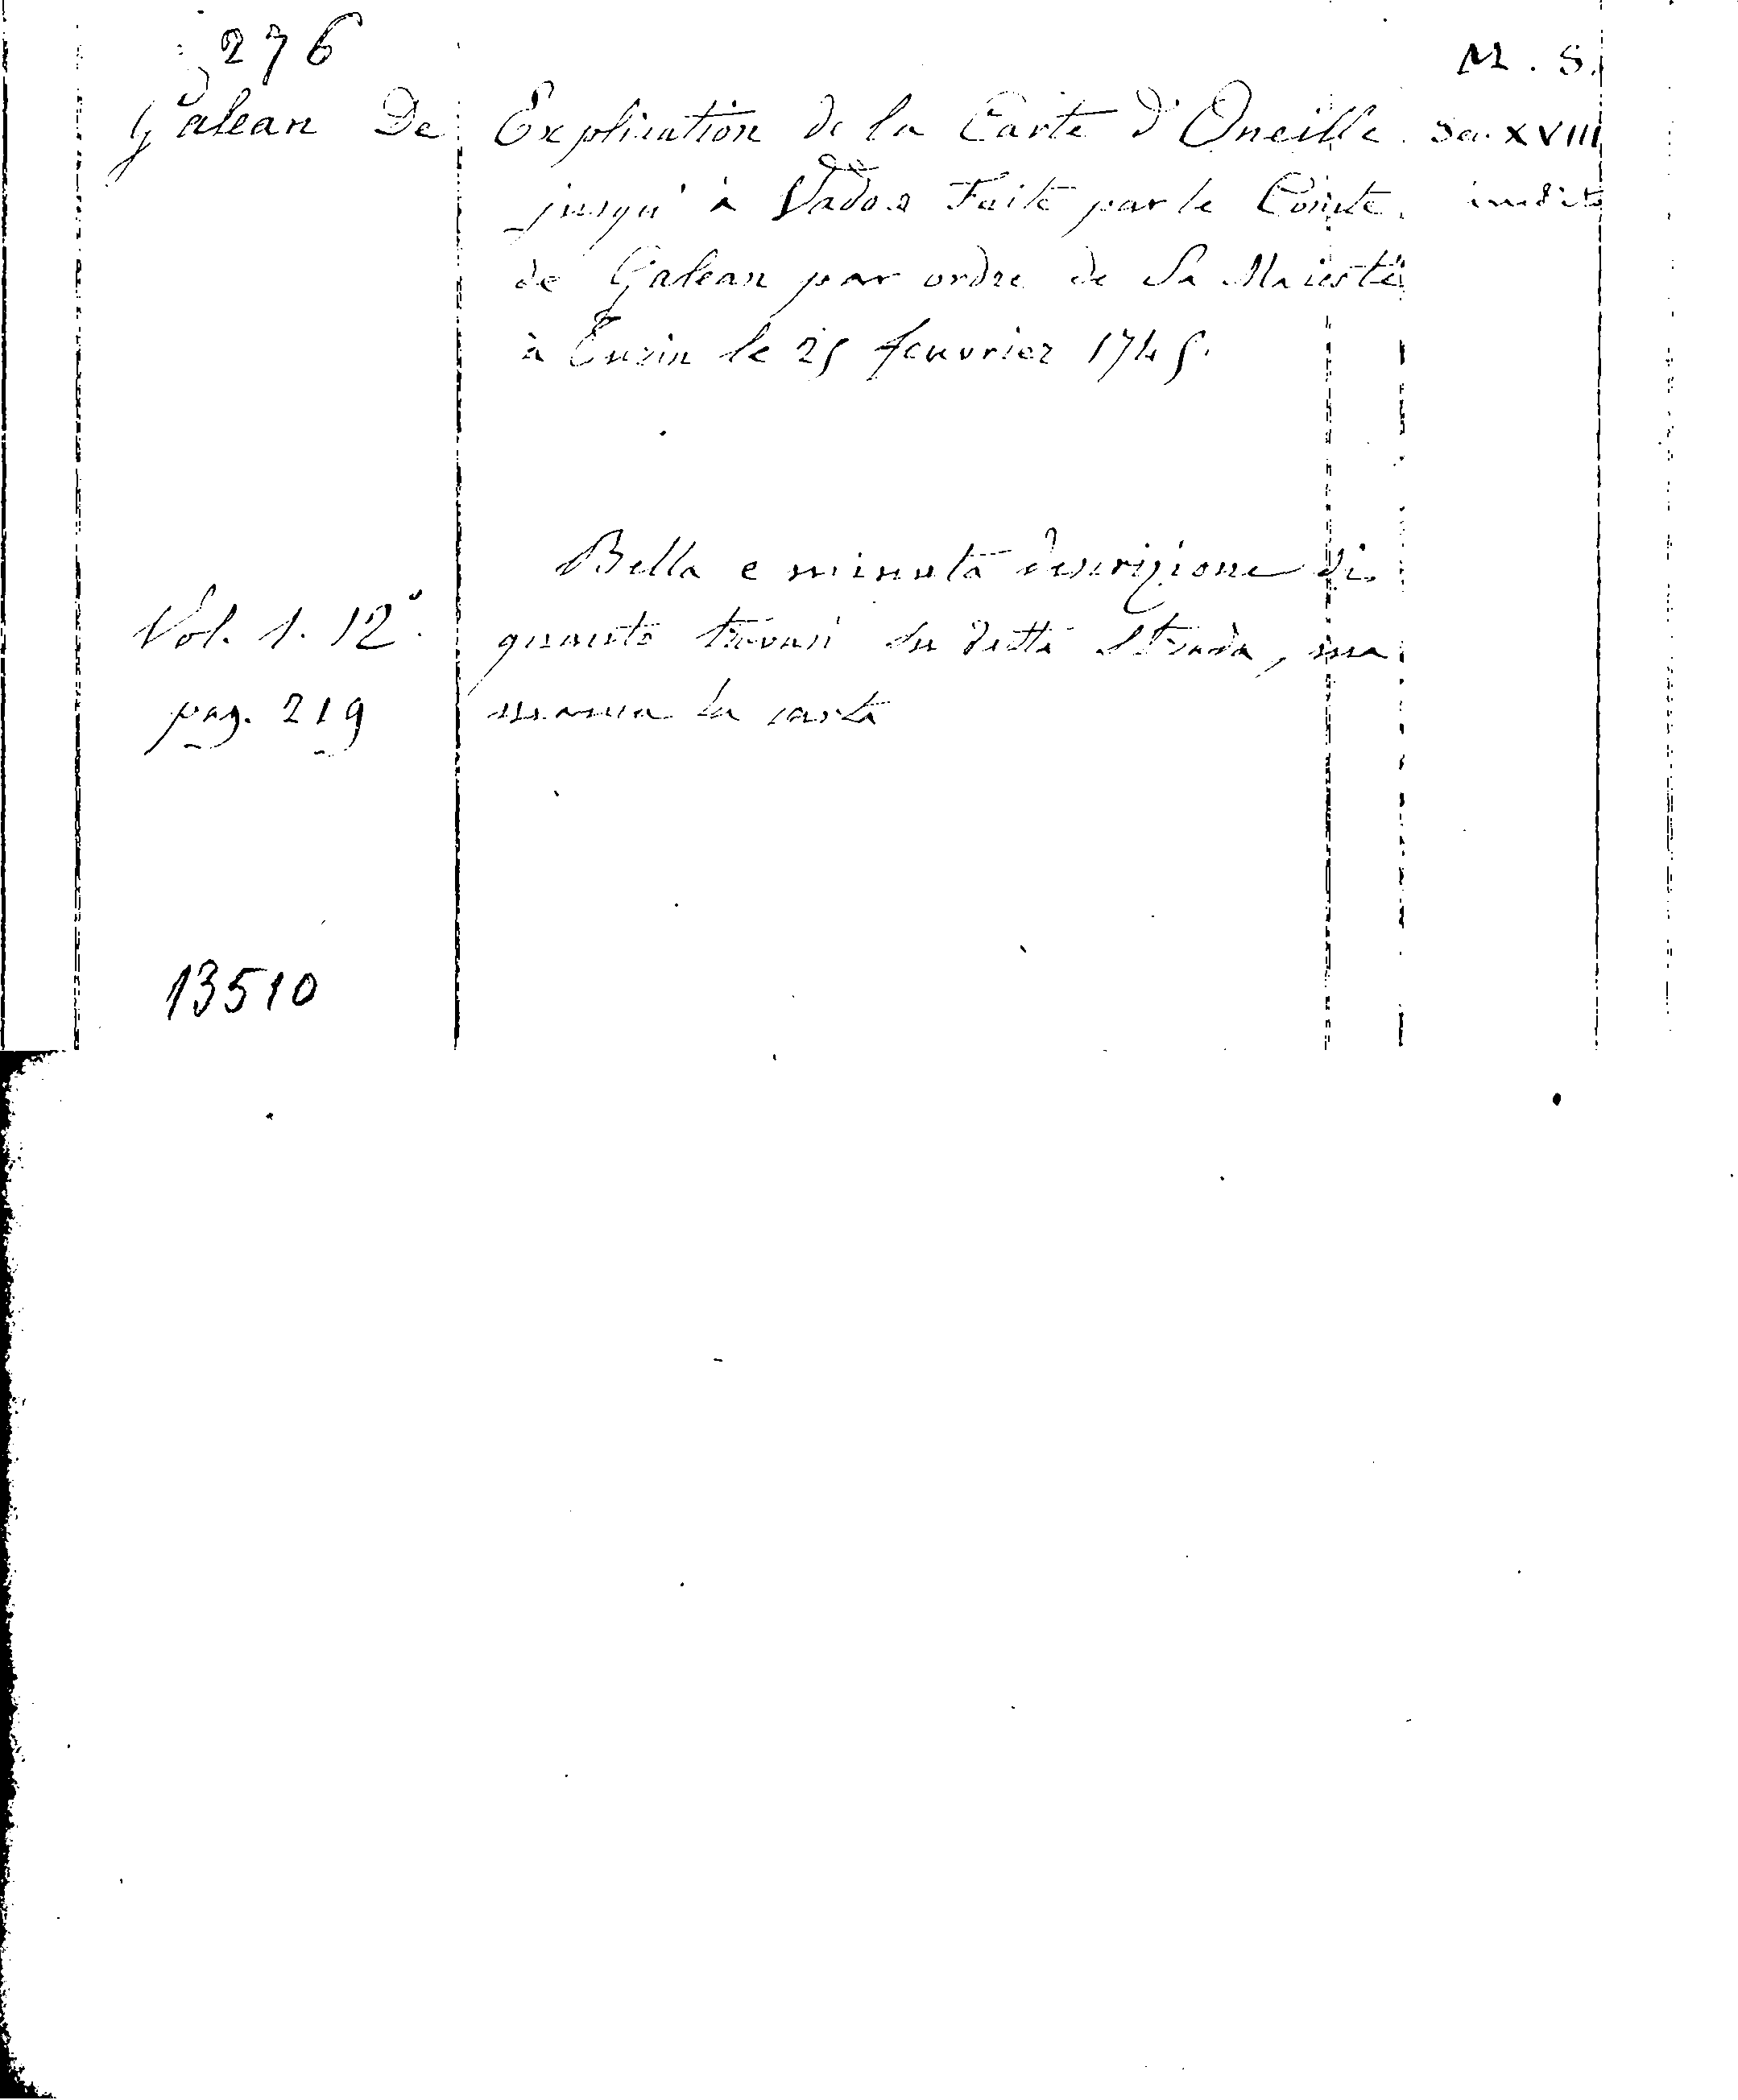 276
M. S.
Galean De
Explication de la Carte d'Oneille
Sec. XVIII
jusqu'à Vado Faite par le Comte
inedito
de Galean par ordre de Sa Maiesté
à Turin le 25 feuvrier 1745.
Bella e minuta descrizione di
Vol. 1. 12°.
quanto trovasi su detta strada, ma
pag. 219
manca la carta
13510